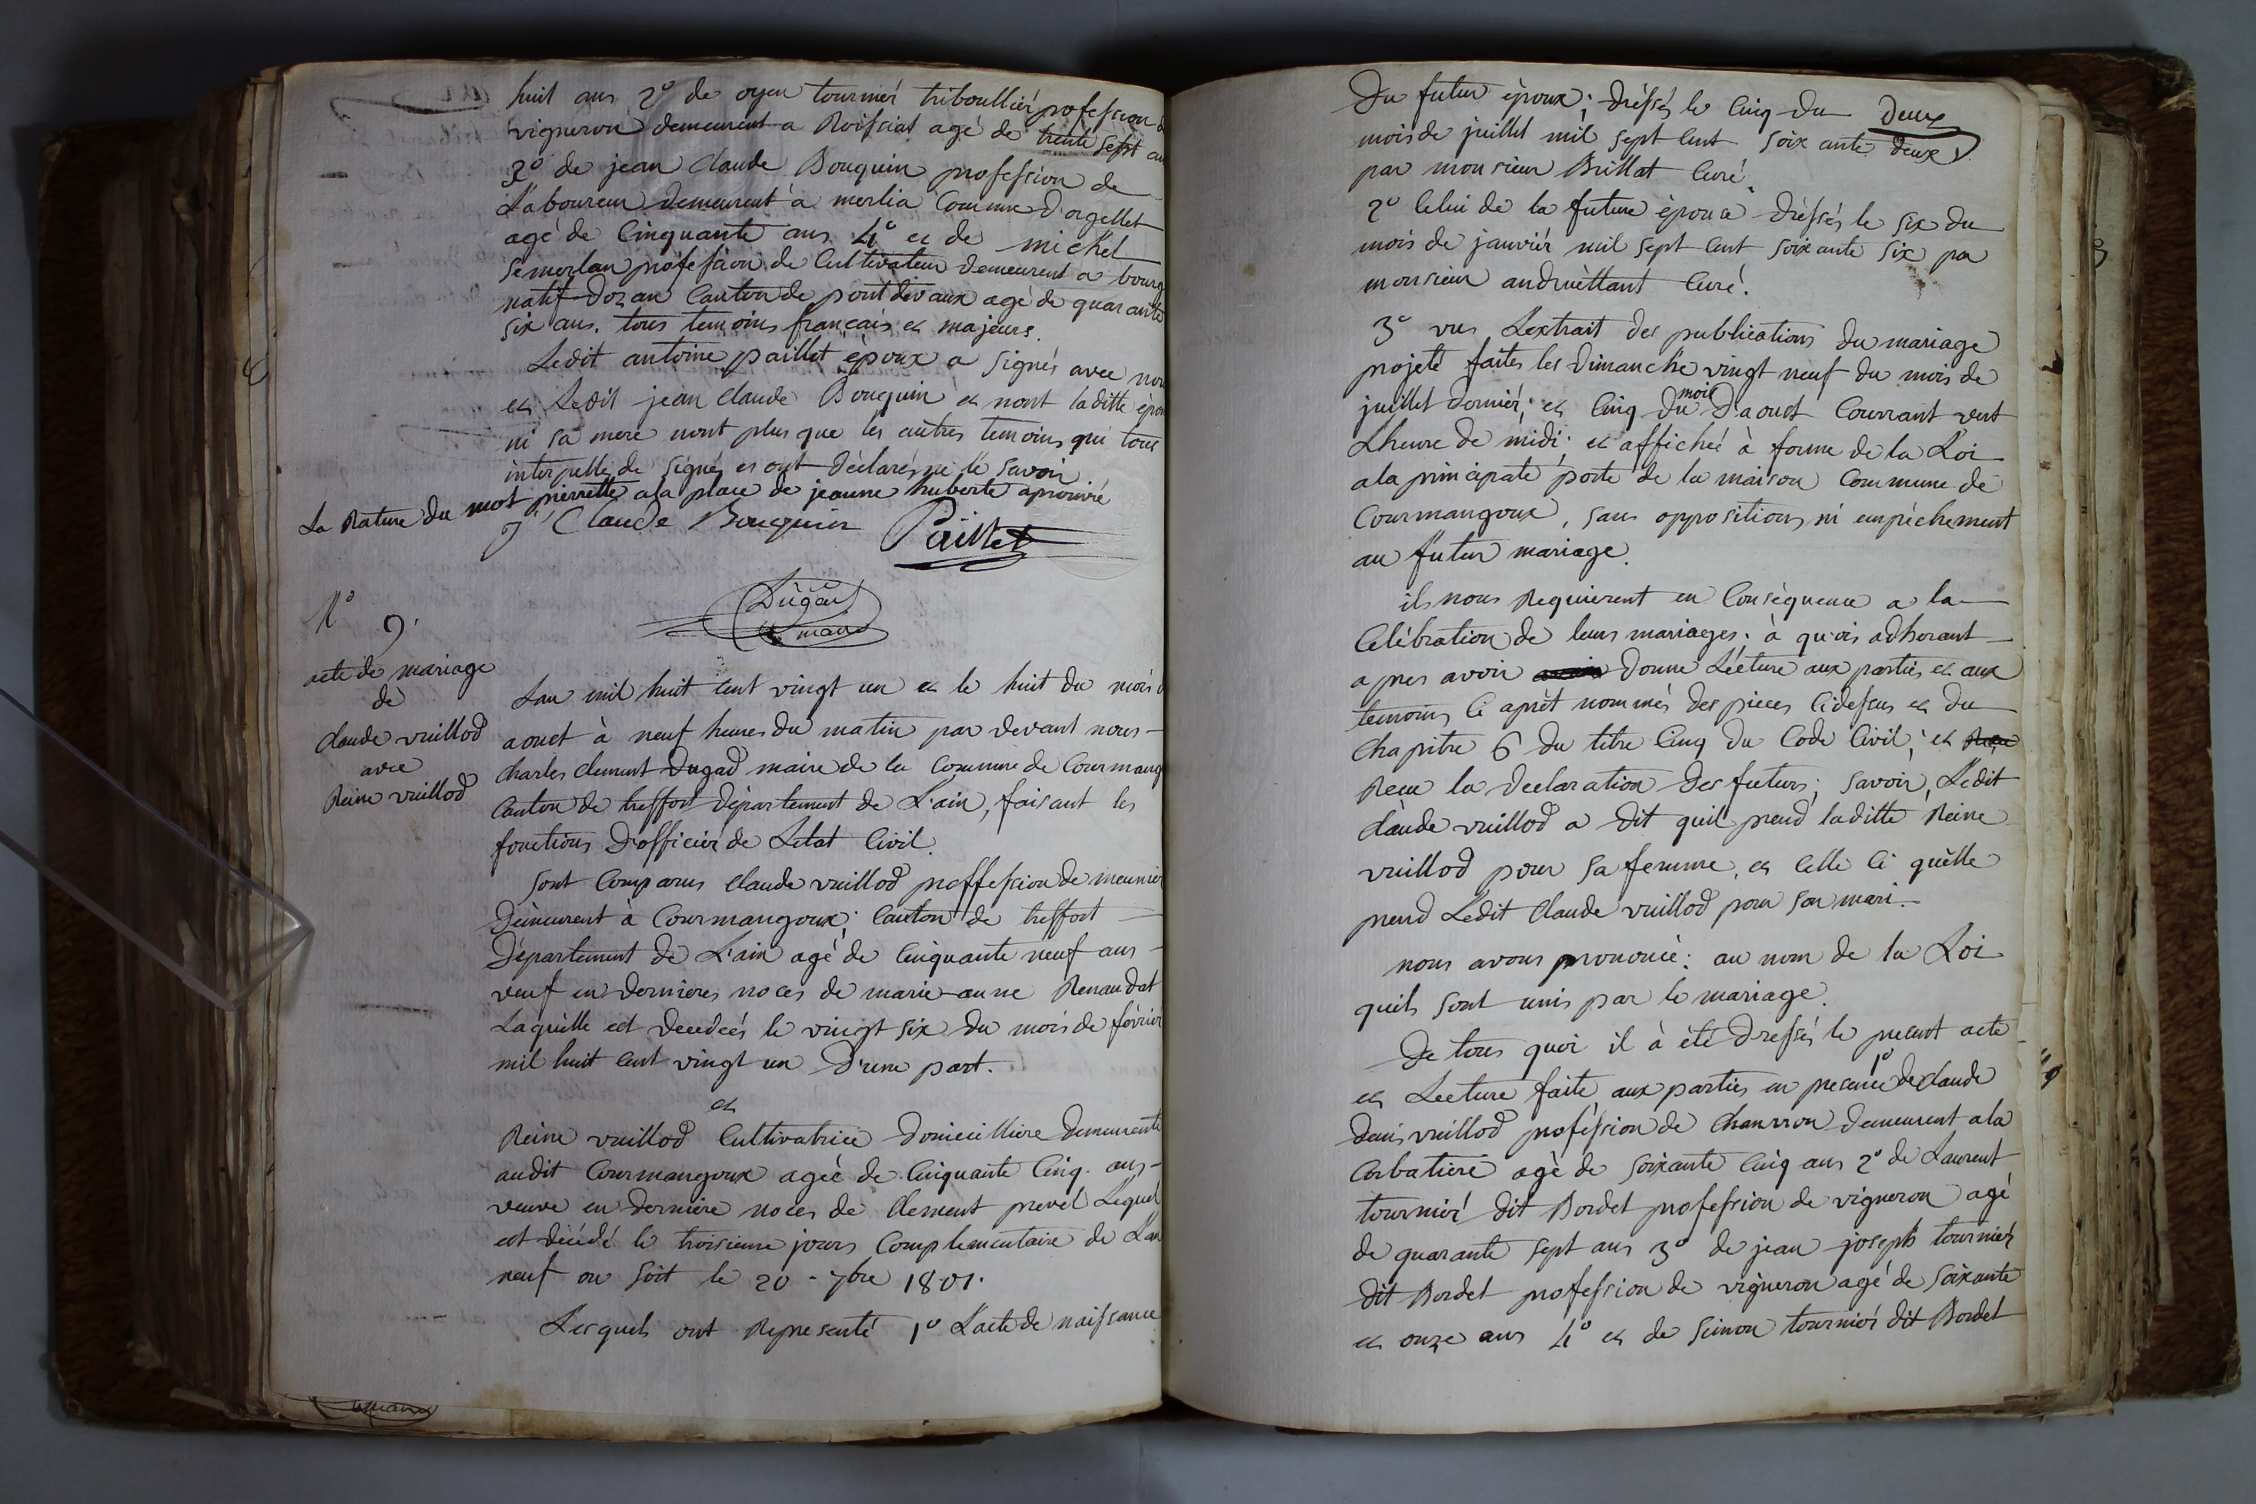 huit ans 2º de oyen tournier triboullier profession de
vigneron demeurent a Roissiat agé de trente sept ans
3º de jean Claude Bouquin profession de
Laboureur demeurent a merlia Commune d'orgellet
agé de Cinquante ans 4º et de michel
semerlan profession de Cultivateur demeurent a bourg
natif Dozan Canton de pontdevaux agé de quarante
six ans. tous temoins français et majeurs.
Ledit antoine paillet époux a signés avec nous
et Ledit jean claude Bouquin et nont laditte épou
ni sa mere nont plus que les autres temoins qui tous
interpellés de signés es ont déclarés ne le savoir
La Rature du mot pierrette a la place de jeanne huberte aprouvé
J Claude Bouquin Paillet
Dugad
maire
Nº 9.
acte de mariage
de
claude vuillod
avec
Reine vuillod
Lan mil huit cent vingt un et le huit du mois d
aouet à neuf heures du matin par devant nous
Charles Clement Dugad maire de la Commune de Courmang
Canton de treffort département de L'ain, faisant les
fonctions D'officier de Letat Civil.
Sont Comparus Claude vuillod proffession de meunier
Démeurent à Courmangoux; Canton de treffort
Département de L'ain agé de Cinquante neuf ans
veuf en dernieres noces de marie anne Renaudat
Laquélle est decedeés le vingt six du mois de février
mil huit cent vingt un D'une part.
et
Reine vuillod Cultivatrice domicilliere demeurente
audit Courmangoux ageé de Cinquante Cinq ans
veuve en derniere noces de Clement prevel Lequel
est décédé le troisieme jours Complementaire de L'an
neuf ou soit le 20 - 7bre 1801.
Lesquels ont Représenté 1º L'acte de naissance
Du futur époux; dréssés le Cinq du deux
mois de juillet mil sept cent soixante deux
par monsieur Brillat Curé.
2º Celui de la future épouse dréssés le six du
mois de janviér mil sept cent soixante six par
monsieur andruéttant Curé.
3º vus Lextrait des publications du mariage
projeté faites les Dimanche vingt neuf du mois de
juillet dernier; et Cinq du mois D'aouet Courrant vert
L'heure de midi; et affichéé à forme de la Loi
a la principate porte de la maison Commune de
Courmangoux, sans oppositions ni empéchement
au futur mariage.
ils nous Requierent en Conséquence a la
Celébration de leurs mariages. à quois adhorant
apres avoir donné Lécture aux parties et aux
temoins Ci aprèt nommés des pieces Cidessus et du
Chapitre 6 du titre Cinq du Code Civil; et
Recu la declaration des futurs; savoir, Ledit
claude vuillod a dit quil prend laditte Reine
vuillod pour sa femme, et Celle Ci quélle
prend Ledit Claude vuillod pour son mari.
nous avons prononcé: au nom de la Loi
quils sont unis par le mariage.
De tous quoi il à été dressés le présent acte
et Lecture faite aux parties en presence 1º de claude
denis vuillod proféssion de Chanvron demeurent a la
Corbatiere agé de soixante Cinq ans 2º de Laurent
tournier dit Bordet profession de vigneron agé
de quarante sept ans 3º de jean joseph tourniér
dit Bordet profession de vigneron agé de soixante
et onze ans 4º et de simon tournier dit Bordet
maire